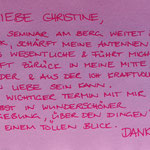 LIEBE CHRISTINE,
SEMINAR AM BERG WEITET
SCHÄRFT MEINE ANTENNEN
WESENTLICHE & FÜHRT MICH
FT ZURÜCK IN MEINE MITTE
DER & AUS DER ICH KRAFTVOLL
IN LIEBE SEIN KANN.
WICHTIGER TERMIN MIT MIR
BST IN WUNDERSCHÖNER
GEBUNG, ÜBER DEN DINGEN
EINEM TOLLEN BLICK.
DANK